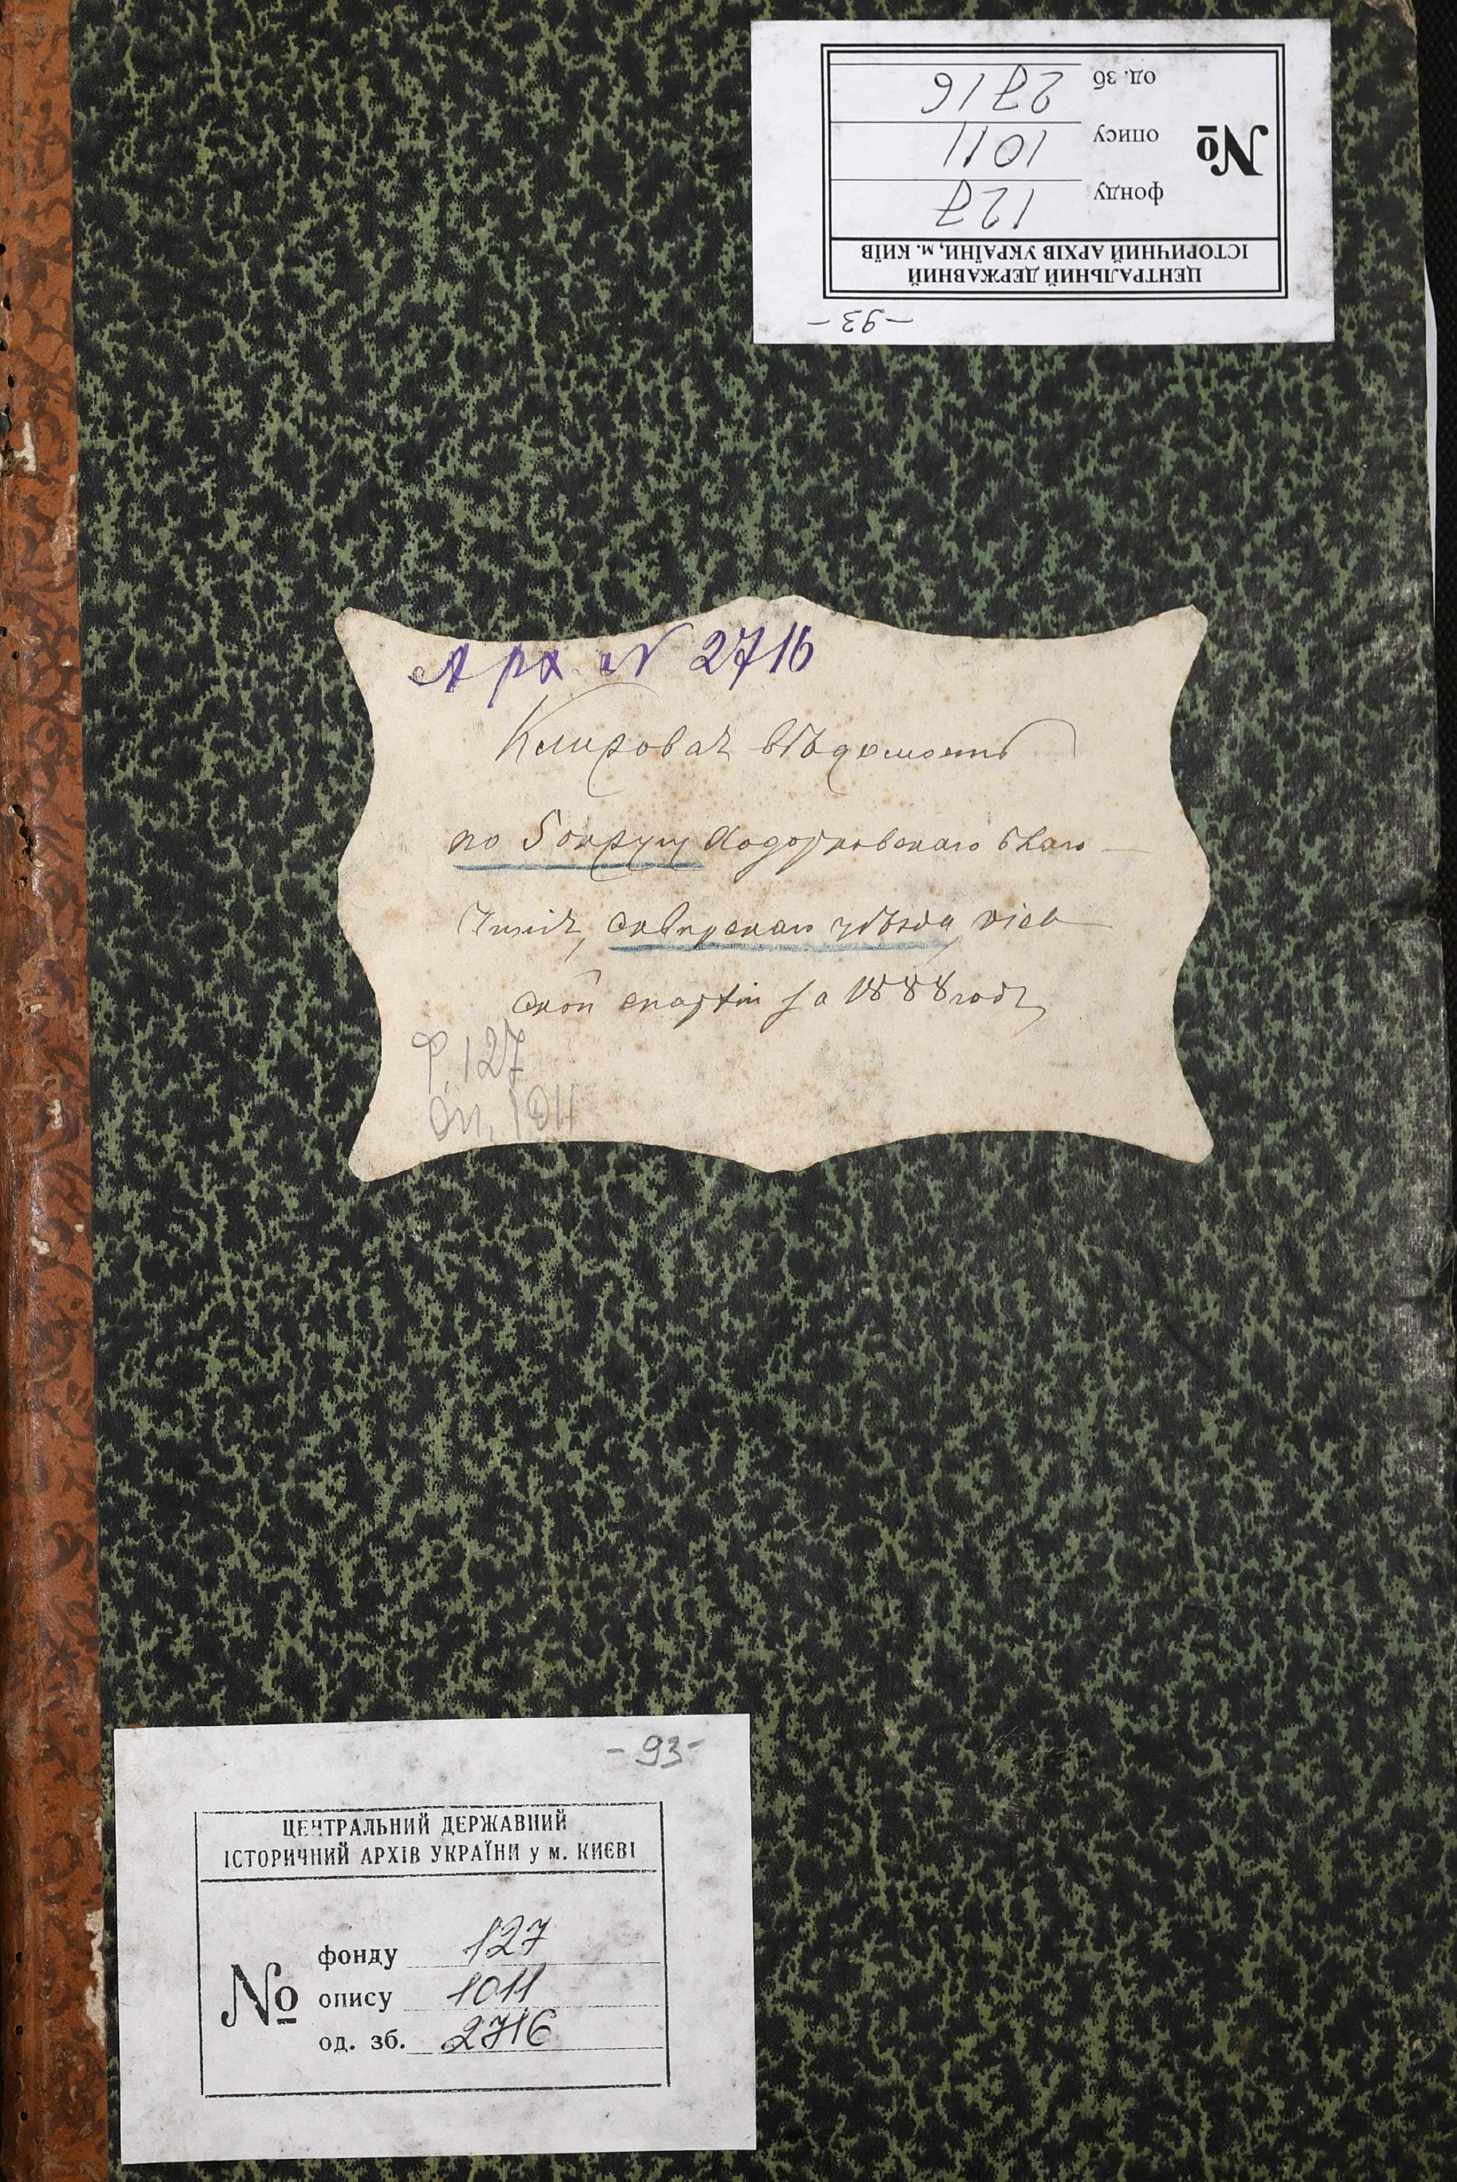 - 93 -
ЦЕНТРАЛЬНИЙ ДЕРЖАВНИЙ
ІСТОРИЧНИЙ АРХІВ УКРАЇНИ, м. КИЇВ
№
фонду 127
опису 1011
од. зб 2716
Арх № 2716
Клировая вѣдомость
по 5 округу Ходорковскаго благо-
чинія, сквирскаго уѣзда, кіев
ской епархіи за 1888 годъ
Ф. 127
Оп. 1011
- 93 -
ЦЕНТРАЛЬНИЙ ДЕРЖАВНИЙ
ІСТОРИЧНИЙ АРХІВ УКРАЇНИ у м. КИЄВІ
№
фонду 127
опису 1011
од. зб. 2716